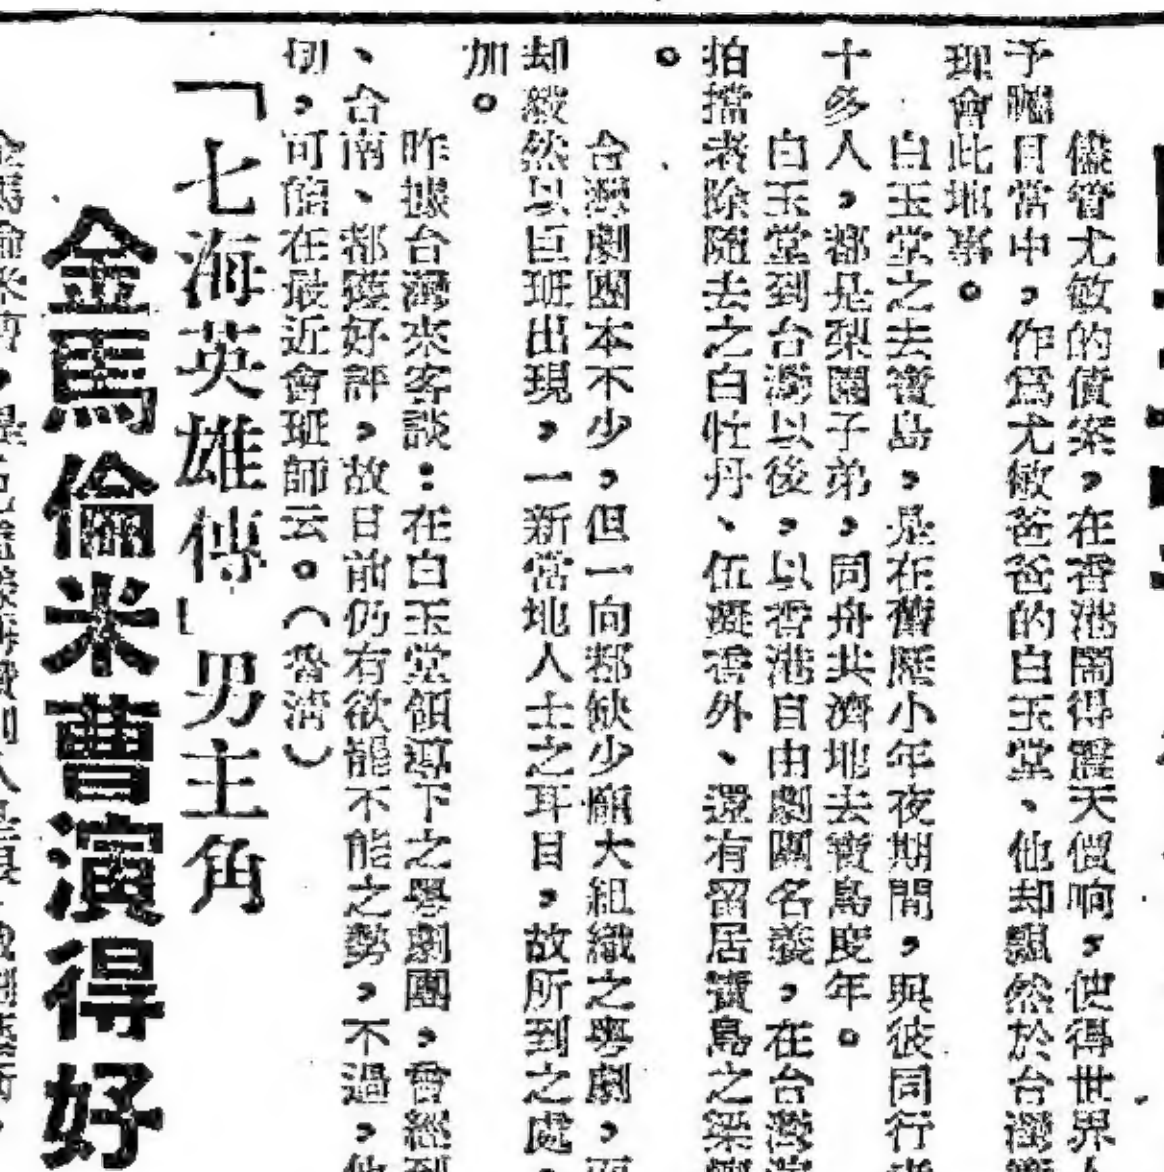 儘管尤敏的債案，在香港鬧得震天價响，使得世界
予矚目當中，作爲尤敏爸爸的白玉堂、他却飄然於台灣
理會此地事。
白玉堂之去寶島，是在舊曆小年夜期間，與彼同行
十多人，都是梨園子弟，同舟共濟地去寶島度年。
白玉堂到台灣以後，以香港自由劇團名義，在台灣
拍擋者除隨去之白牡丹、伍凝香外、還有留居寶島之梁
。
台灣劇團本不少，但一向都缺少龐大組織之粤劇，而
却毅然以巨班出現，一新當地人士之耳目，故所到之處，
加。
昨據台灣來客談：在白玉堂領導下之粤劇團，曾經到
、台南、都獲好評，故目前仍有欲罷不能之勢，不過，他
初，可能在最近會班師云。（香清）
「七海英雄傳」男主角
金馬倫米曹演得好